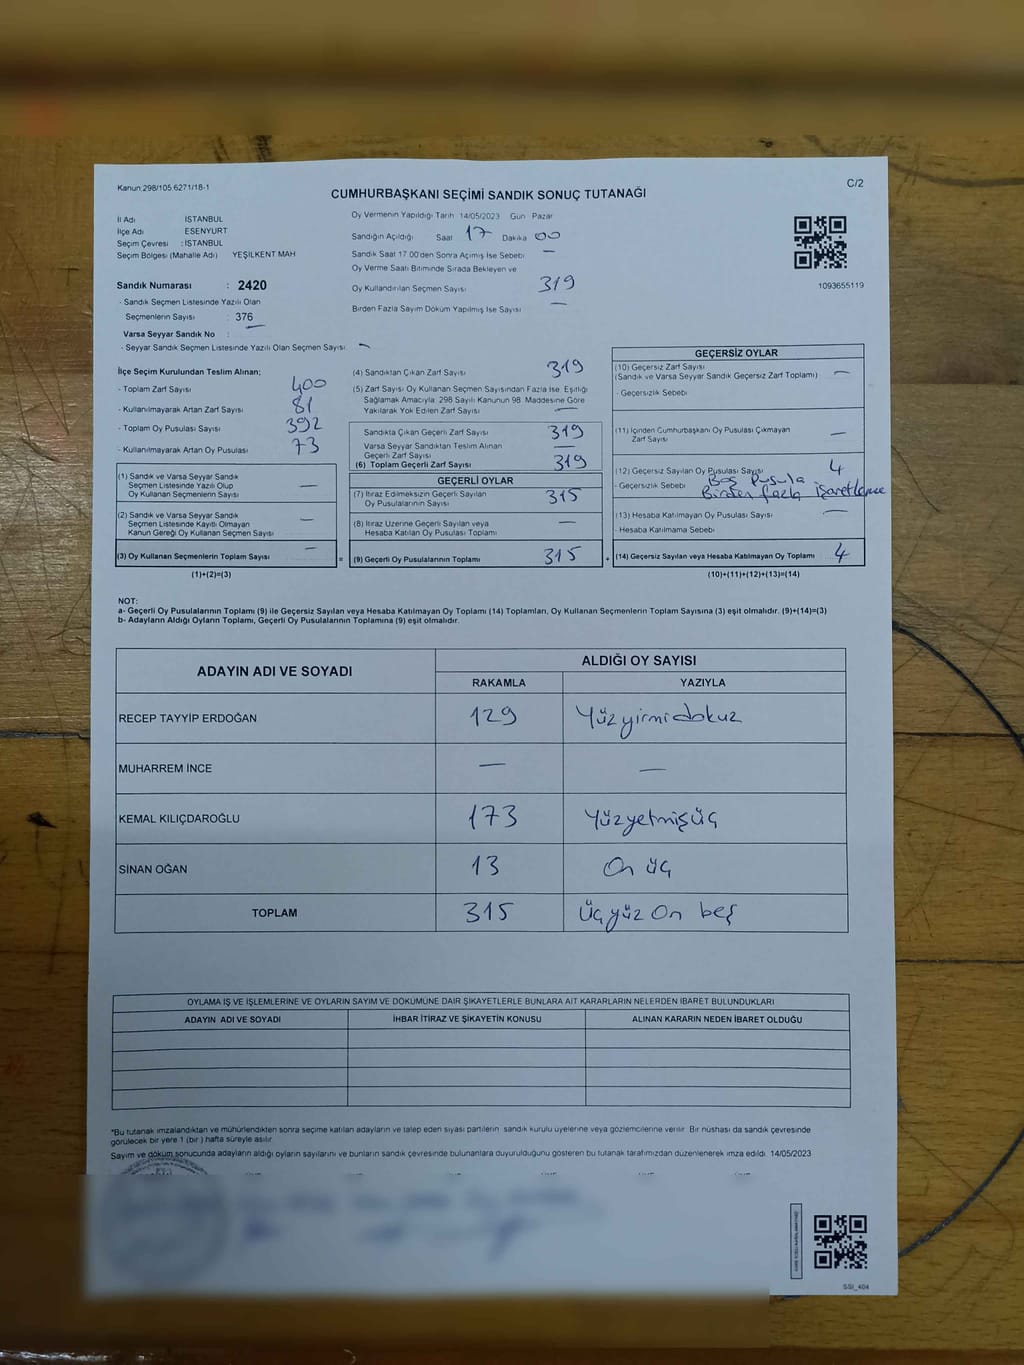 Kanun:298/105.6271/18-1
C/2
CUMHURBAŞKANI SEÇİMİ SANDIK SONUÇ TUTANAĞI
İl Adı İSTANBUL
İlçe Adı ESENYURT
Seçim Çevresi : İSTANBUL
Seçim Bölgesi (Mahalle Adı) YEŞİLKENT MAH
Sandık Numarası : 2420
- Sandık Seçmen Listesinde Yazılı Olan
Seçmenlerin Sayısı : 376
Varsa Seyyar Sandık No : —
- Seyyar Sandık Seçmen Listesinde Yazılı Olan Seçmen Sayısı: —
Oy Vermenin Yapıldığı Tarih 14/05/2023 Gün Pazar
Sandığın Açıldığı Saat 17 Dakika 00
Sandık Saat 17.00'den Sonra Açımış İse Sebebi —
Oy Verme Saati Bitiminde Sırada Bekleyen ve
Oy Kullandırılan Seçmen Sayısı 319
Birden Fazla Sayım Döküm Yapılmış İse Sayısı —
1093655119
İlçe Seçim Kurulundan Teslim Alınan;
- Toplam Zarf Sayısı 400
- Kullanılmayarak Artan Zarf Sayısı 81
- Toplam Oy Pusulası Sayısı 392
- Kullanılmayarak Artan Oy Pusulası 73
(1) Sandık ve Varsa Seyyar Sandık
Seçmen Listesinde Yazılı Olup
Oy Kullanan Seçmenlerin Sayısı —
(2) Sandık ve Varsa Seyyar Sandık
Seçmen Listesinde Kayıtlı Olmayan
Kanun Gereği Oy Kullanan Seçmen Sayısı —
(3) Oy Kullanan Seçmenlerin Toplam Sayısı —
(1)+(2)=(3)
(4) Sandıktan Çıkan Zarf Sayısı 319
(5) Zarf Sayısı Oy Kullanan Seçmen Sayısından Fazla İse, Eşitliği
Sağlamak Amacıyla; 298 Sayılı Kanunun 98. Maddesine Göre
Yakılarak Yok Edilen Zarf Sayısı —
Sandıkta Çıkan Geçerli Zarf Sayısı 319
Varsa Seyyar Sandıktan Teslim Alınan
Geçerli Zarf Sayısı —
(6) Toplam Geçerli Zarf Sayısı 319
GEÇERLİ OYLAR
(7) İtiraz Edilmeksizin Geçerli Sayılan
Oy Pusulalarının Sayısı 315
(8) İtiraz Üzerine Geçerli Sayılan veya
Hesaba Katılan Oy Pusulası Toplamı —
= (9) Geçerli Oy Pusulalarının Toplamı 315
GEÇERSİZ OYLAR
(10) Geçersiz Zarf Sayısı
(Sandık ve Varsa Seyyar Sandık Geçersiz Zarf Toplamı) —
- Geçersizlik Sebebi
(11) İçinden Cumhurbaşkanı Oy Pusulası Çıkmayan
Zarf Sayısı —
(12) Geçersiz Sayılan Oy Pusulası Sayısı 4
- Geçersizlik Sebebi Boş Pusula
Birden fazla işaretleme
(13) Hesaba Katılmayan Oy Pusulası Sayısı —
- Hesaba Katılmama Sebebi
+ (14) Geçersiz Sayılan veya Hesaba Katılmayan Oy Toplamı 4
(10)+(11)+(12)+(13)=(14)
NOT:
a- Geçerli Oy Pusulalarının Toplamı (9) ile Geçersiz Sayılan veya Hesaba Katılmayan Oy Toplamı (14) Toplamları, Oy Kullanan Seçmenlerin Toplam Sayısına (3) eşit olmalıdır. (9)+(14)=(3)
b- Adayların Aldığı Oyların Toplamı, Geçerli Oy Pusulalarının Toplamına (9) eşit olmalıdır.
ADAYIN ADI VE SOYADI ALDIĞI OY SAYISI
RAKAMLA YAZIYLA
RECEP TAYYİP ERDOĞAN 129 Yüzyirmidokuz
MUHARREM İNCE — —
KEMAL KILIÇDAROĞLU 173 Yüzyetmişüç
SİNAN OĞAN 13 On üç
TOPLAM 315 Üçyüz On beş
OYLAMA İŞ VE İŞLEMLERİNE VE OYLARIN SAYIM VE DÖKÜMÜNE DAİR ŞİKAYETLERLE BUNLARA AİT KARARLARIN NELERDEN İBARET BULUNDUKLARI
ADAYIN ADI VE SOYADI İHBAR İTİRAZ VE ŞİKAYETİN KONUSU ALINAN KARARIN NEDEN İBARET OLDUĞU
*Bu tutanak imzalandıktan ve mühürlendikten sonra seçime katılan adayların ve talep eden siyasi partilerin sandık kurulu üyelerine veya gözlemcilerine verilir. Bir nüshası da sandık çevresinde
görülecek bir yere 1 (bir ) hafta süreyle asılır.
Sayım ve döküm sonucunda adayların aldığı oyların sayılarını ve bunların sandık çevresinde bulunanlara duyurulduğunu gösteren bu tutanak tarafımızdan düzenlenerek imza edildi. 14/05/2023
SSI_404